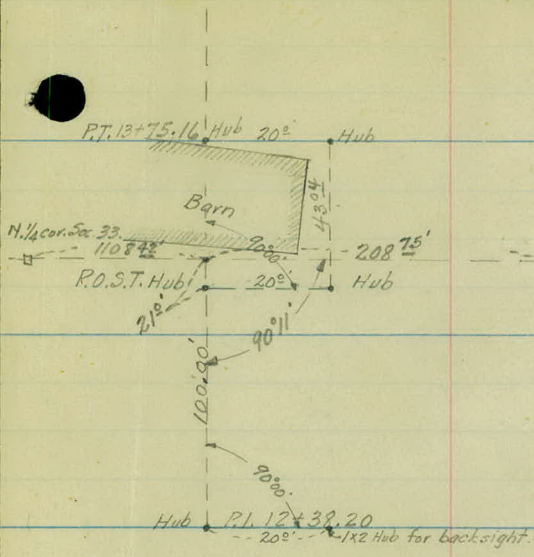 P.T. 13+75.16 Hub 20º Hub
43.04
Barn
N.1/4 cor. Sec. 33.
1108.42' 90º00' 208.75'
R.O.S.T. Hub 20º Hub
21º'
90º11'
100.00'
90º00'
Hub P.I. 12+38.20
20º' 1x2 Hub for backsight.